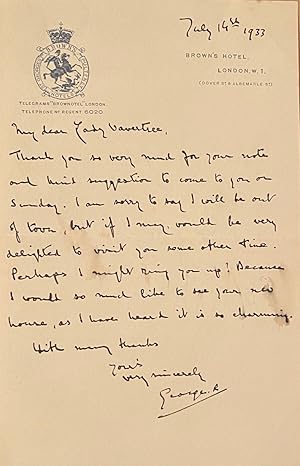 July 14th 1933
BROWN'S HOTEL,
LONDON, W.1.
(DOVER ST & ALBEMARLE ST)
TELEGRAMS "BROWNOTEL" LONDON.
TELEPHONE Nº REGENT 6020.
My dear Lady Wavertree,
Thank you so very much for your note
and kind suggestion to come to you on
Sunday. I am sorry to say I will be out
of town, but if I may would be very
delighted to visit you some other time.
Perhaps I might ring you up? Because
I would so much like to see your new
house, as I have heard it is so charming.
With many thanks
Yours
very sincerely
George. R